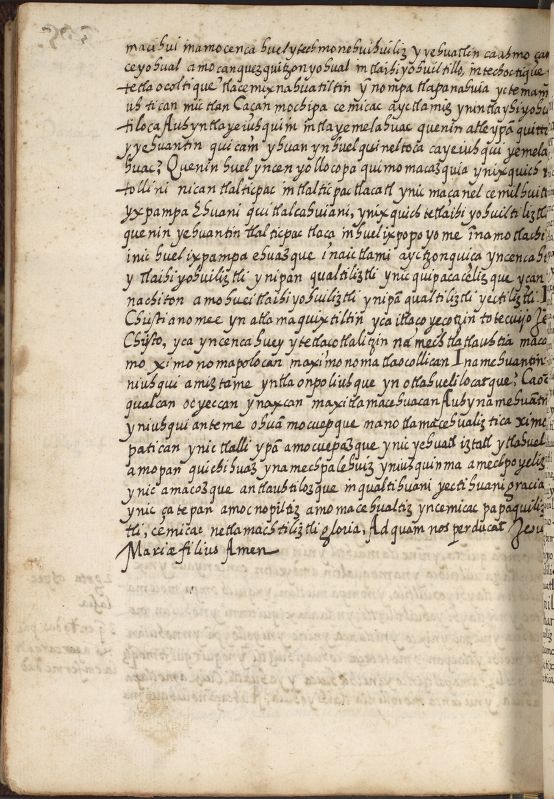 macihui inamocenca huel ytech monehuihuiliz y yehuatlin caahmo çan
ceyohual amo çanquezquitzonyohual in tlaihiyohuiltillo, intechoctique
tetlaocoltique tlacemixnahuatiltin ynompa tlapanahuia yctemamauh
tican mictlan Caçan mochipa cemicac ayctlamiz ynintlayhiyohuil
tiloca Auhyntlayeiuhquim intlayemelahuac quenin atleypã quitta
yyehuantin quicam yhuan ynhuelquineltoca cayeiuhqui yemela
huac? Quenin huel yncenyollocopa quimomacazquia ynixquich
tollini nican tlalticpac intlalticpac tlacatl ynic maçanel cemilhuitl
yxpampa Ehuani quitlalcahuiani, ynixquich tetlaihiyohuiltiliztli
quenin yehuantin tlalticpactlaca inhuel ixpopoyome
inic huel ixpampa ehuazque inaictlami ayctzonquiça yncenca
y tlaihiyohuiliztli ynipan qualtiliztli ynicquipacacelizque ycan
nachiton amohuei tlaihiyohuiliztli ynipã qualtiliztli yectiliztli
Christianomee yn atlamaquixtiltin yca itlaçoyecotzin totecuiyo Je
Christo, yca yncenca huey ytetlaçotlalitzin namechtlatlauhtia maca
mo ximonomapolocan maximonomatlaocollican Inamehuantin
niuhqui amiztame yntlaonpoliuhque yn otlahuelilocatque?
qualcan ocyeccan ynaxcan maxitlamacehuacan Auhynãmehuãtin
yniuhqui anteme ohuãmocuepque manotlamacehualiztica xime
patican ynictlalli ypã amocuepazque ynic yehuatl iztatl ytlahuel
amopan quichihuaz ynamechpalehuiz yniuhquinma amechpoyeliz
ynic amacozque antlauhtilozque inqualtihuani yectihuani gracia
ynic çatepan amocnopiltiz amomacehualtiz yncemicac papaquiliz
tli, cemicac netlamachtiliztli gloria, Ad quam nos perducat Jesu
Mariæ filius Amen